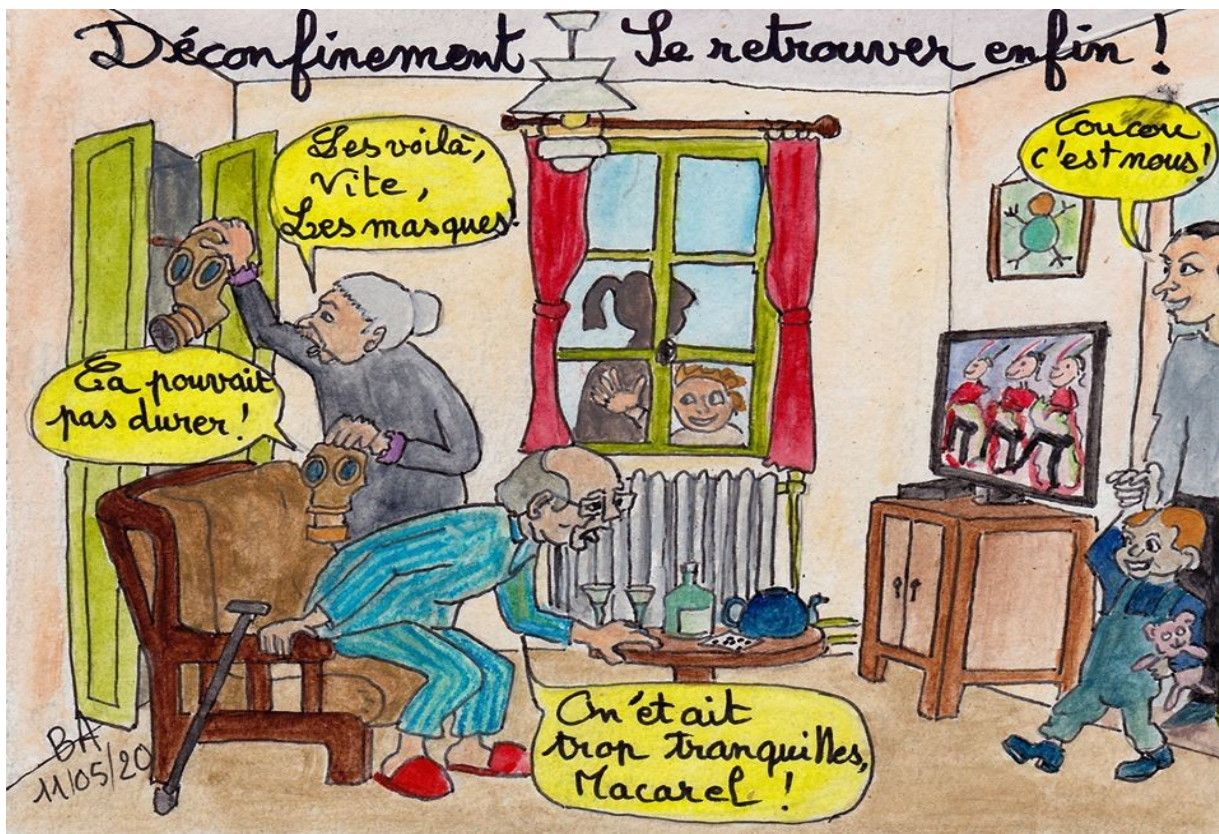 Déconfinement Se retrouver enfin !
Les voilà,
Vite,
Les masques!
Coucou
c'est nous!
Ça pouvait
pas durer !
On était
trop tranquilles,
Macarel !
BA
11/05/20